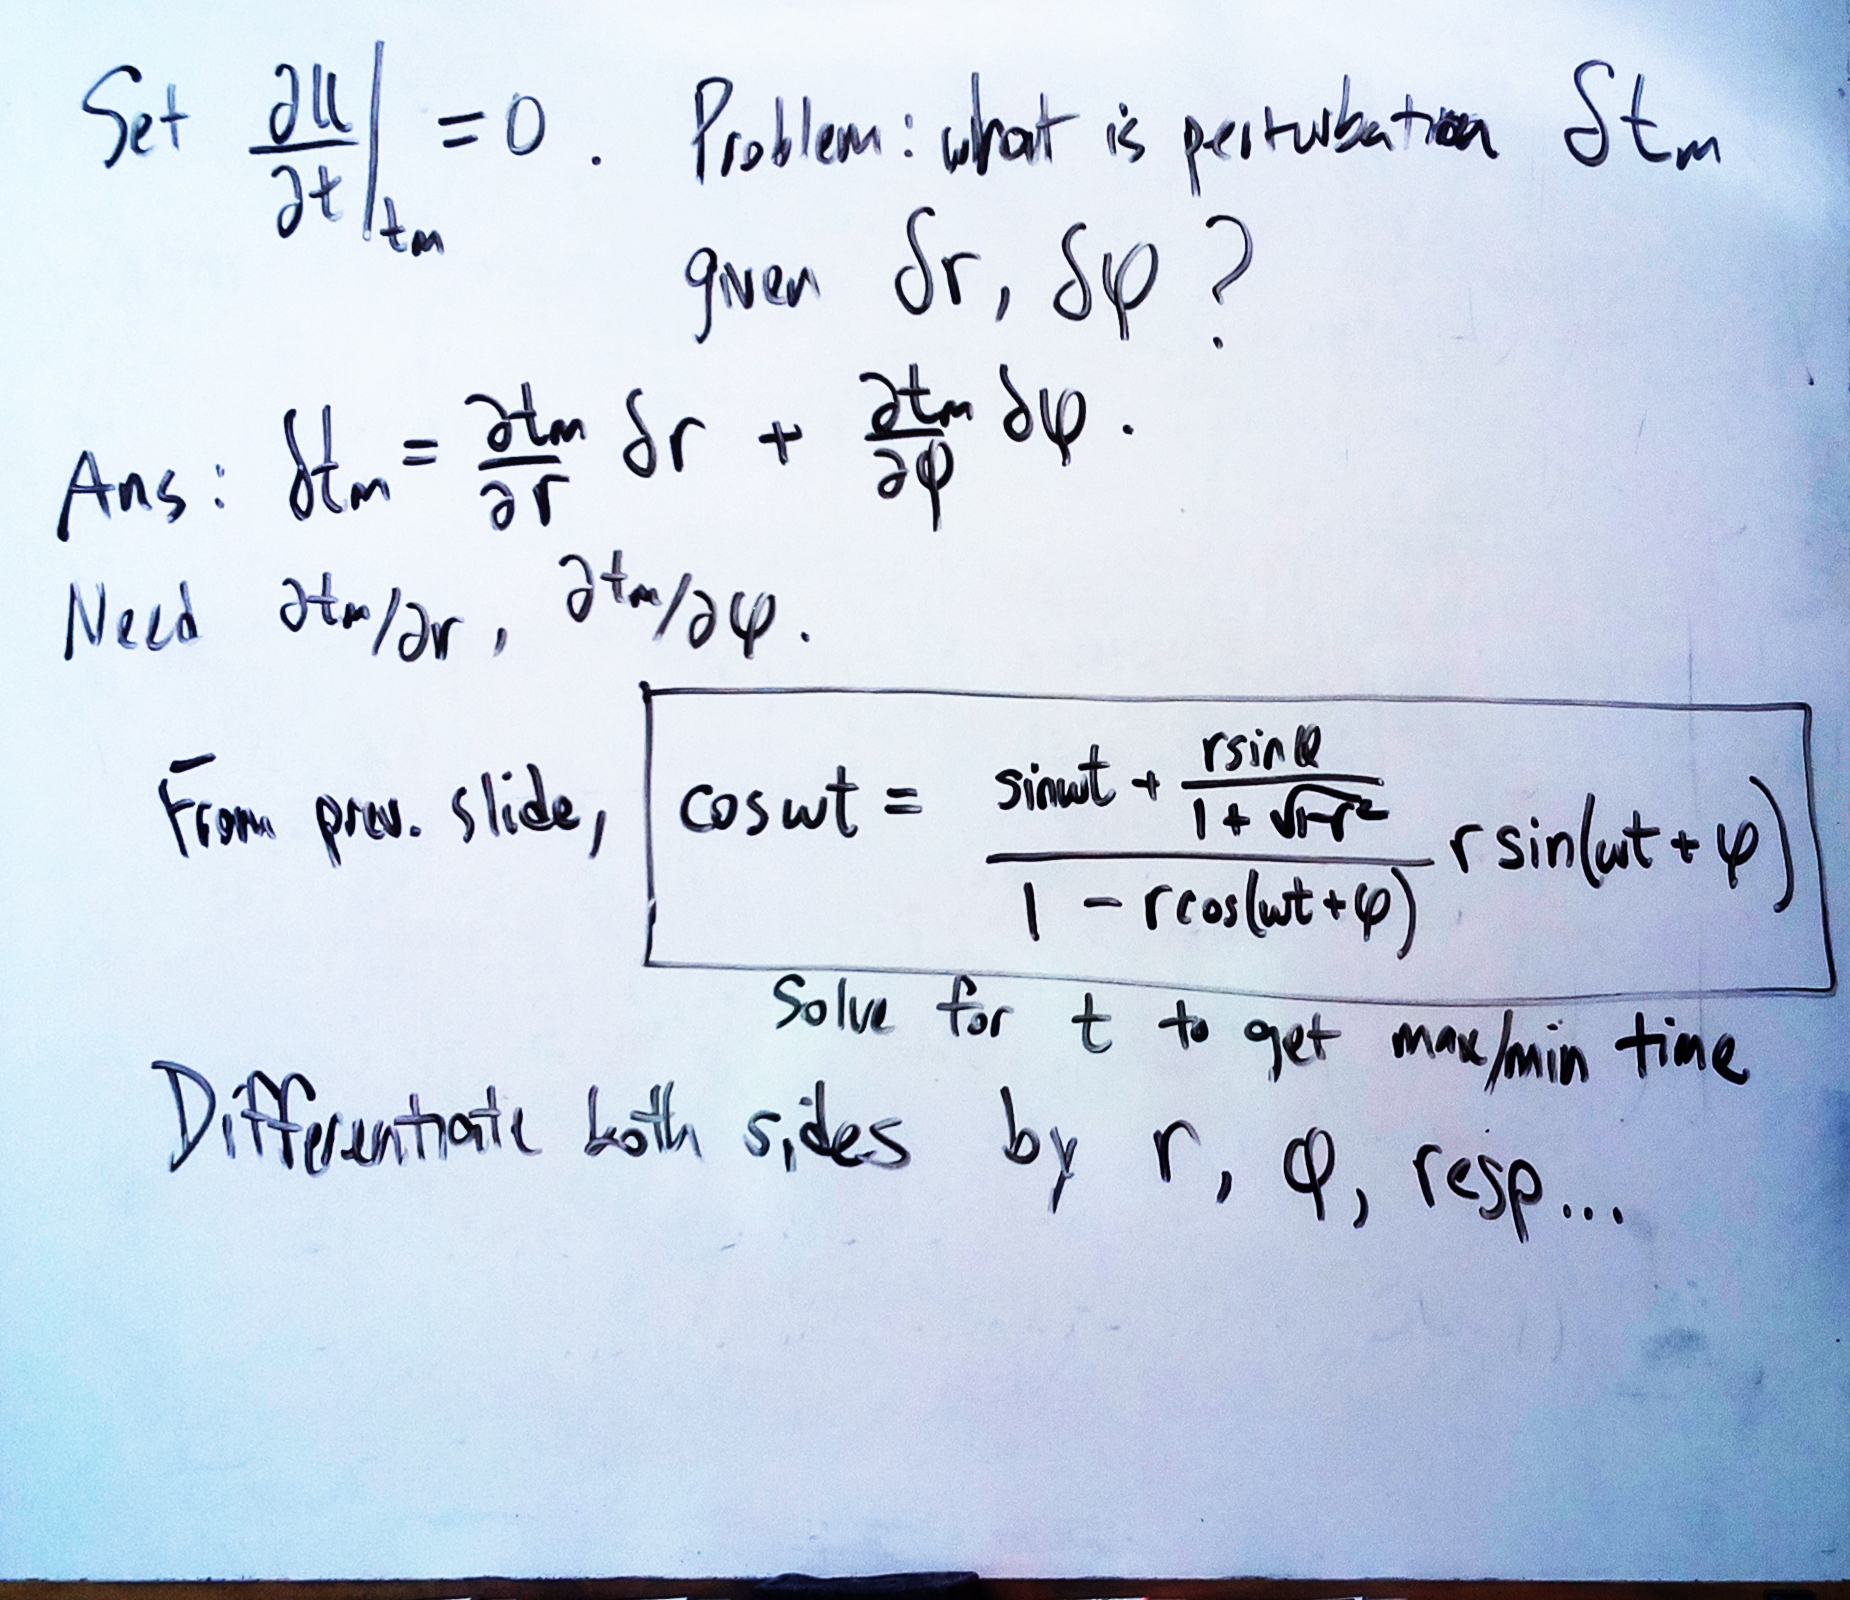 Set ∂u/∂t|tm = 0. Problem: what is perturbation δtm
given δr, δφ?
Ans: δtm = ∂tm/∂r δr + ∂tm/∂φ δφ.
Need ∂tm/∂r, ∂tm/∂φ.
From prev. slide, cos ωt = (sin ωt + (r sin φ)/(1 + √1-r²))/(1 - r cos(ωt + φ)) r sin(ωt + φ)
Solve for t to get max/min time
Differentiate both sides by r, φ, resp...